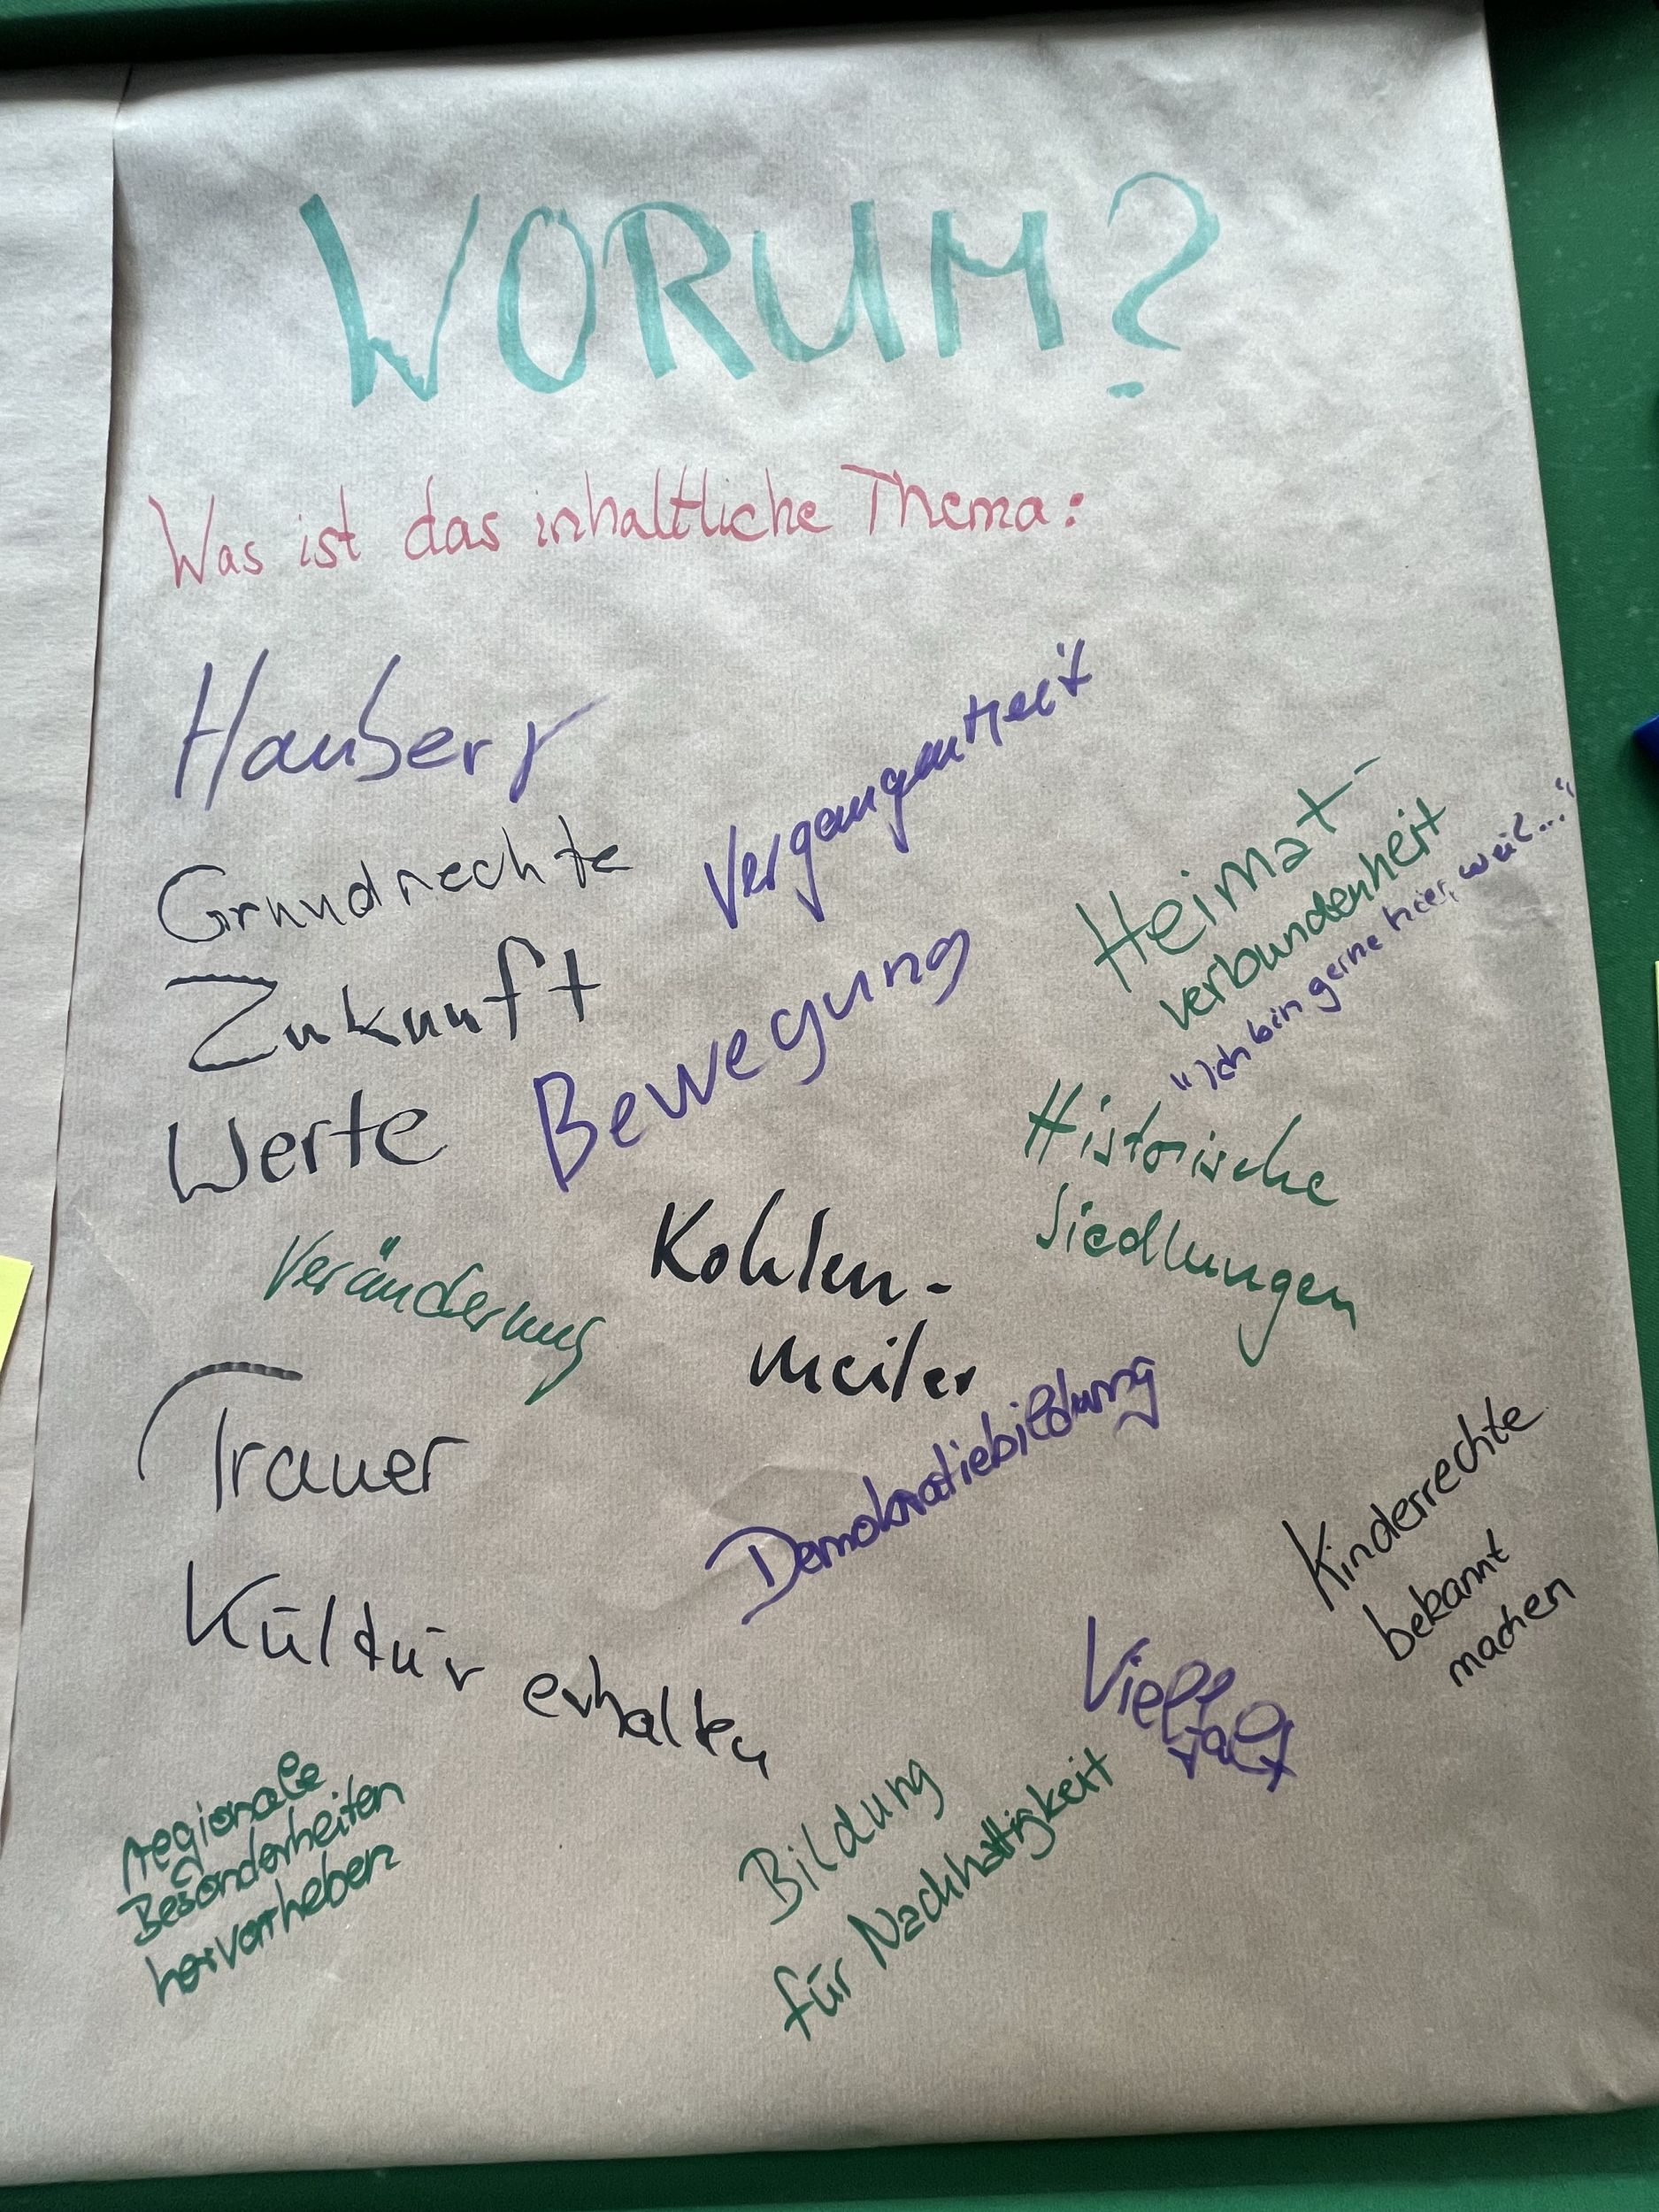 WORUM?
Was ist das inhaltliche Thema:
Hauberg
Vergangenheit
Grundrechte
Heimat-
verbundenheit
"Ich bin gerne hier, weil..."
Zukunft
Bewegung
Werte
Historische
Siedlungen
Veränderung
Kohlen-
meiler
Trauer
Demokratiebildung
Kinderrechte
bekannt
machen
Kultur erhalten
Vielfalt
regionale
Besonderheiten
hervorheben
Bildung
für Nachhaltigkeit